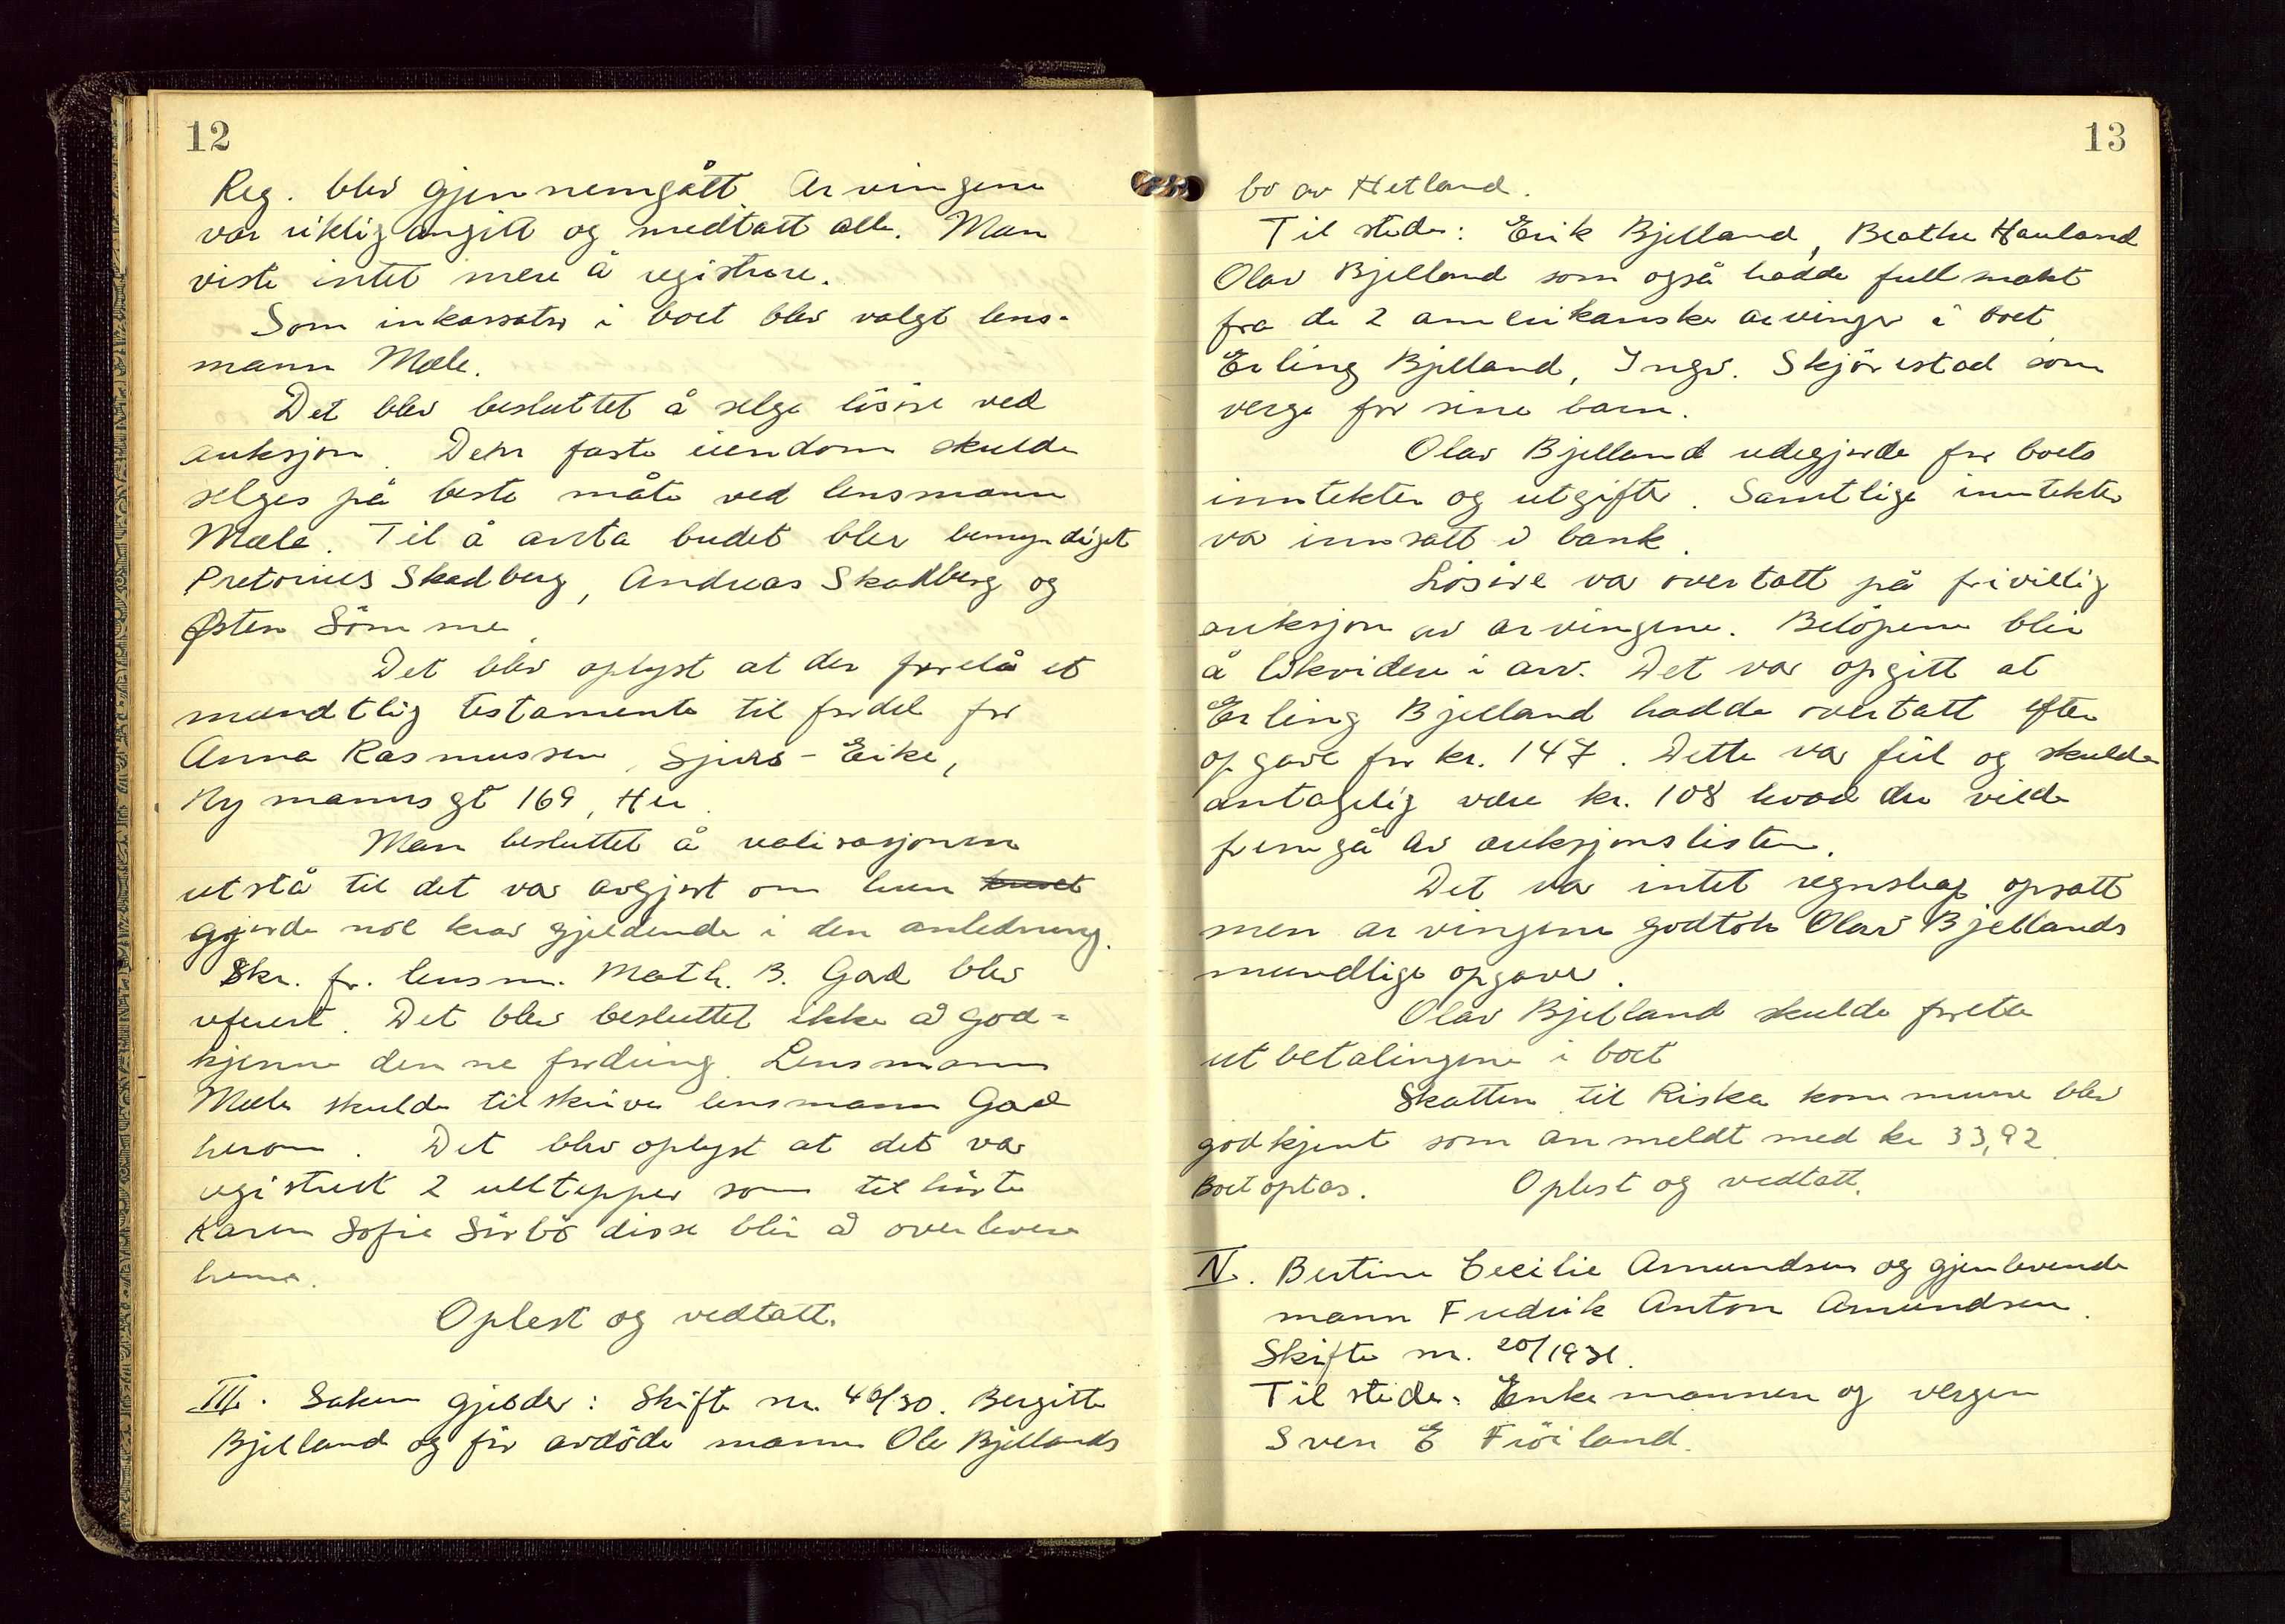 12
Reg. blev gjennemgått. Arvingene
var riktig angitt og medtatt alle. Man
viste intet mere å registrere.
Som inkassator i boet blev valgt lens-
mann Mæle.
Det blev besluttet å selge lösöre ved
auksjon. Den faste eiendom skulde
selges på beste måte ved lensmann
Mæle. Til å anta budet blev bemyndiget
Pretorius Skadberg, Andreas Skadberg og
Østen Sömme.
Det blev oplyst at der forelå et
mundtlig testamente til fordel for
Anna Rasmussen, Sjurs-Eike,
Nymannsgt 169, Her.
Man besluttet å
utstå til det var avgjort om hun kravet
gjorde noe krav gjeldende i den anledning.
Skr. fr. lensm. Math. B. Gad blev
referert. Det blev besluttet ikke å god-
kjenne denne fordring. Lensmann
Mæle skulde tilskrive lensmann Gad
herom. Det blev oplyst at det var
registrert 2 ulltepper som tilhörte
Karen Sofie Sörbö disse blir å overlevere
henne.
Oplest og vedtatt.
III. Saken gjelder: Skifte nr. 46/30. Bergitte
Bjelland og för avdöde mann Ole Bjellands
13
bo av Hetland.
Til stede: Erik Bjelland, Beathe Hauland
Olav Bjelland som også hadde fullmakt
fra de 2 amerikanske arvinger i boet
Erling Bjelland, Ingv. Skjörestad som
verge for sine barn.
Olav Bjelland redegjorde for boets
inntekter og utgifter. Samtlige inntekter
var innsatt i bank.
Lösöre var overtatt på frivillig
auksjon av arvingene. Belöpene blir
å likvidere i arv. Det var opgitt at
Erling Bjelland hadde overtatt efter
opgave for kr. 147. Dette var feil og skulde
antagelig være kr. 108 hvad der vilde
fremgå av auksjonslisten.
Det var intet regnskap opsatt
men arvingene godtok Olav Bjellands
mundlige opgaver.
Olav Bjelland skulde foreta
utbetalingene i boet
Skatten til Riska kommune blev
godkjent som anmeldt med kr 33,92.
Boet optas. Oplest og vedtatt.
IV. Bertine Cecilie Amundsen og gjenlevende
mann Fredrik Anton Amundsen.
Skifte nr. 20/1931.
Til stede: Enkemannen og vergen
Sven E Fröiland.